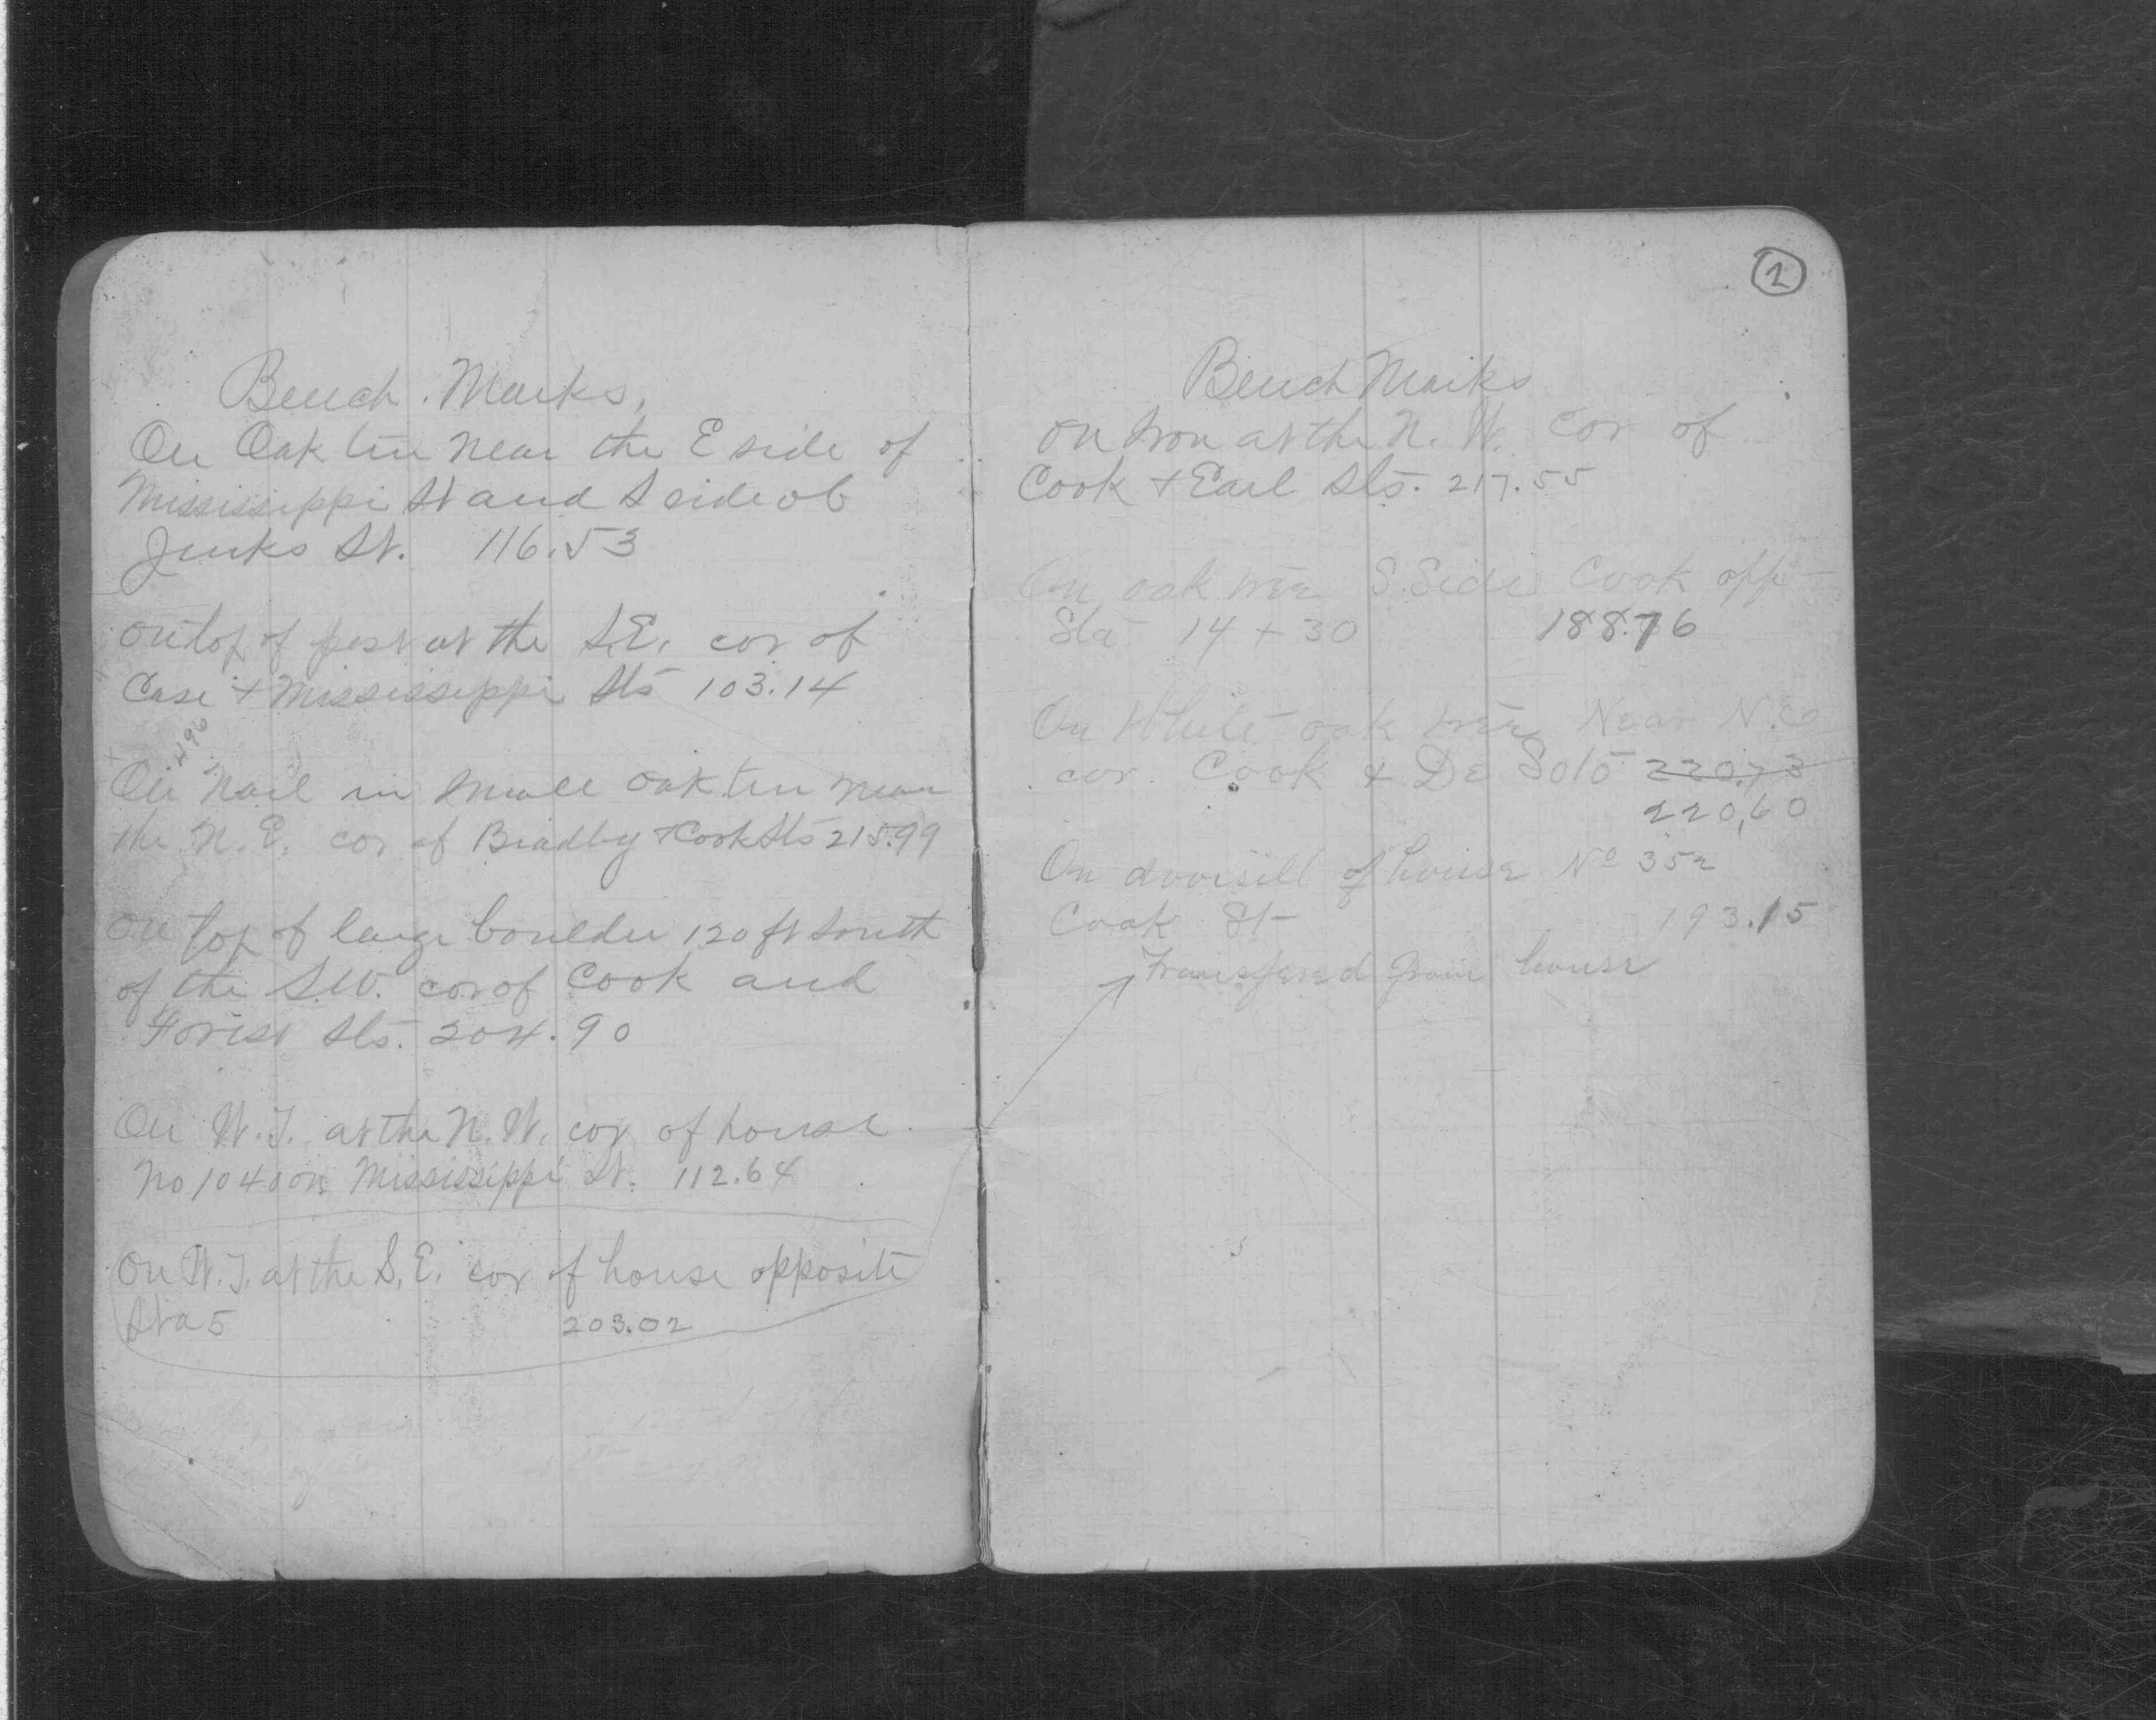 Bench. Marks,
On Oak tree near the E side of
Mississippi St and S side of
Jenks St. 116.53
On top of post at the S.E. cor of
Case + Mississippi Sts 103.14
On Nail in small oak tree near
the N.E. cor of Bradley + Cook Sts 215.99
On top of large boulder 120 ft South
of the S.W. cor of Cook and
Forest Sts. 204.90
On W.T. at the N.W. cor of house
No 1040 on Mississippi St. 112.64
On W.T. at the S.E. cor of house opposite
Sta 5 203.02
1
Bench Marks
On Iron at the N.W. cor of
Cook + Earl Sts. 217.55
On oak tree S. Side Cook opp
Sta 14 + 30 188.76
On White oak tree Near N.E
cor. Cook & De Soto 220.73
220,60
On doorsill of house No 352
Cook St 193.15
Transfered from house